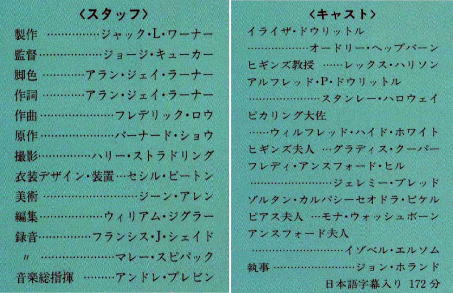 〈スタッフ〉
製作 ……………ジャック・L・ワーナー
監督……………ジョージ・キューカー
脚色 …………アラン・ジェイ・ラーナー
作詞 …………アラン・ジェイ・ラーナー
作曲…………………フレデリック・ロウ
原作…………………バーナード・ショウ
撮影…………ハリー・ストラドリング
衣装デザイン・装置…セシル・ビートン
美術 ………………………ジーン・アレン
編集……………ウィリアム・ジグラー
録音……………フランシス・J・シェイド
〃 …………………マレー・スピバック
音楽総指揮 ………アンドレ・プレビン
〈キャスト〉
イライザ・ドウリットル
……………………オードリー・ヘップバーン
ヒギンズ教授 ……レックス・ハリソン
アルフレッド・P・ドウリットル
…………………スタンレー・ハロウェイ
ピカリング大佐
……ウィルフレッド・ハイド・ホワイト
ヒギンズ夫人 …グラディス・クーパー
フレディ・アンスフォード・ヒル
……………………ジェレミー・ブレッド
ゾルタン・カルパシーセオドラ・ビケル
ピアス夫人 …モナ・ウォッシュボーン
アンスフォード夫人
………………………イゾベル・エルソム
執事……………………ジョン・ホランド
日本語字幕入り 172分